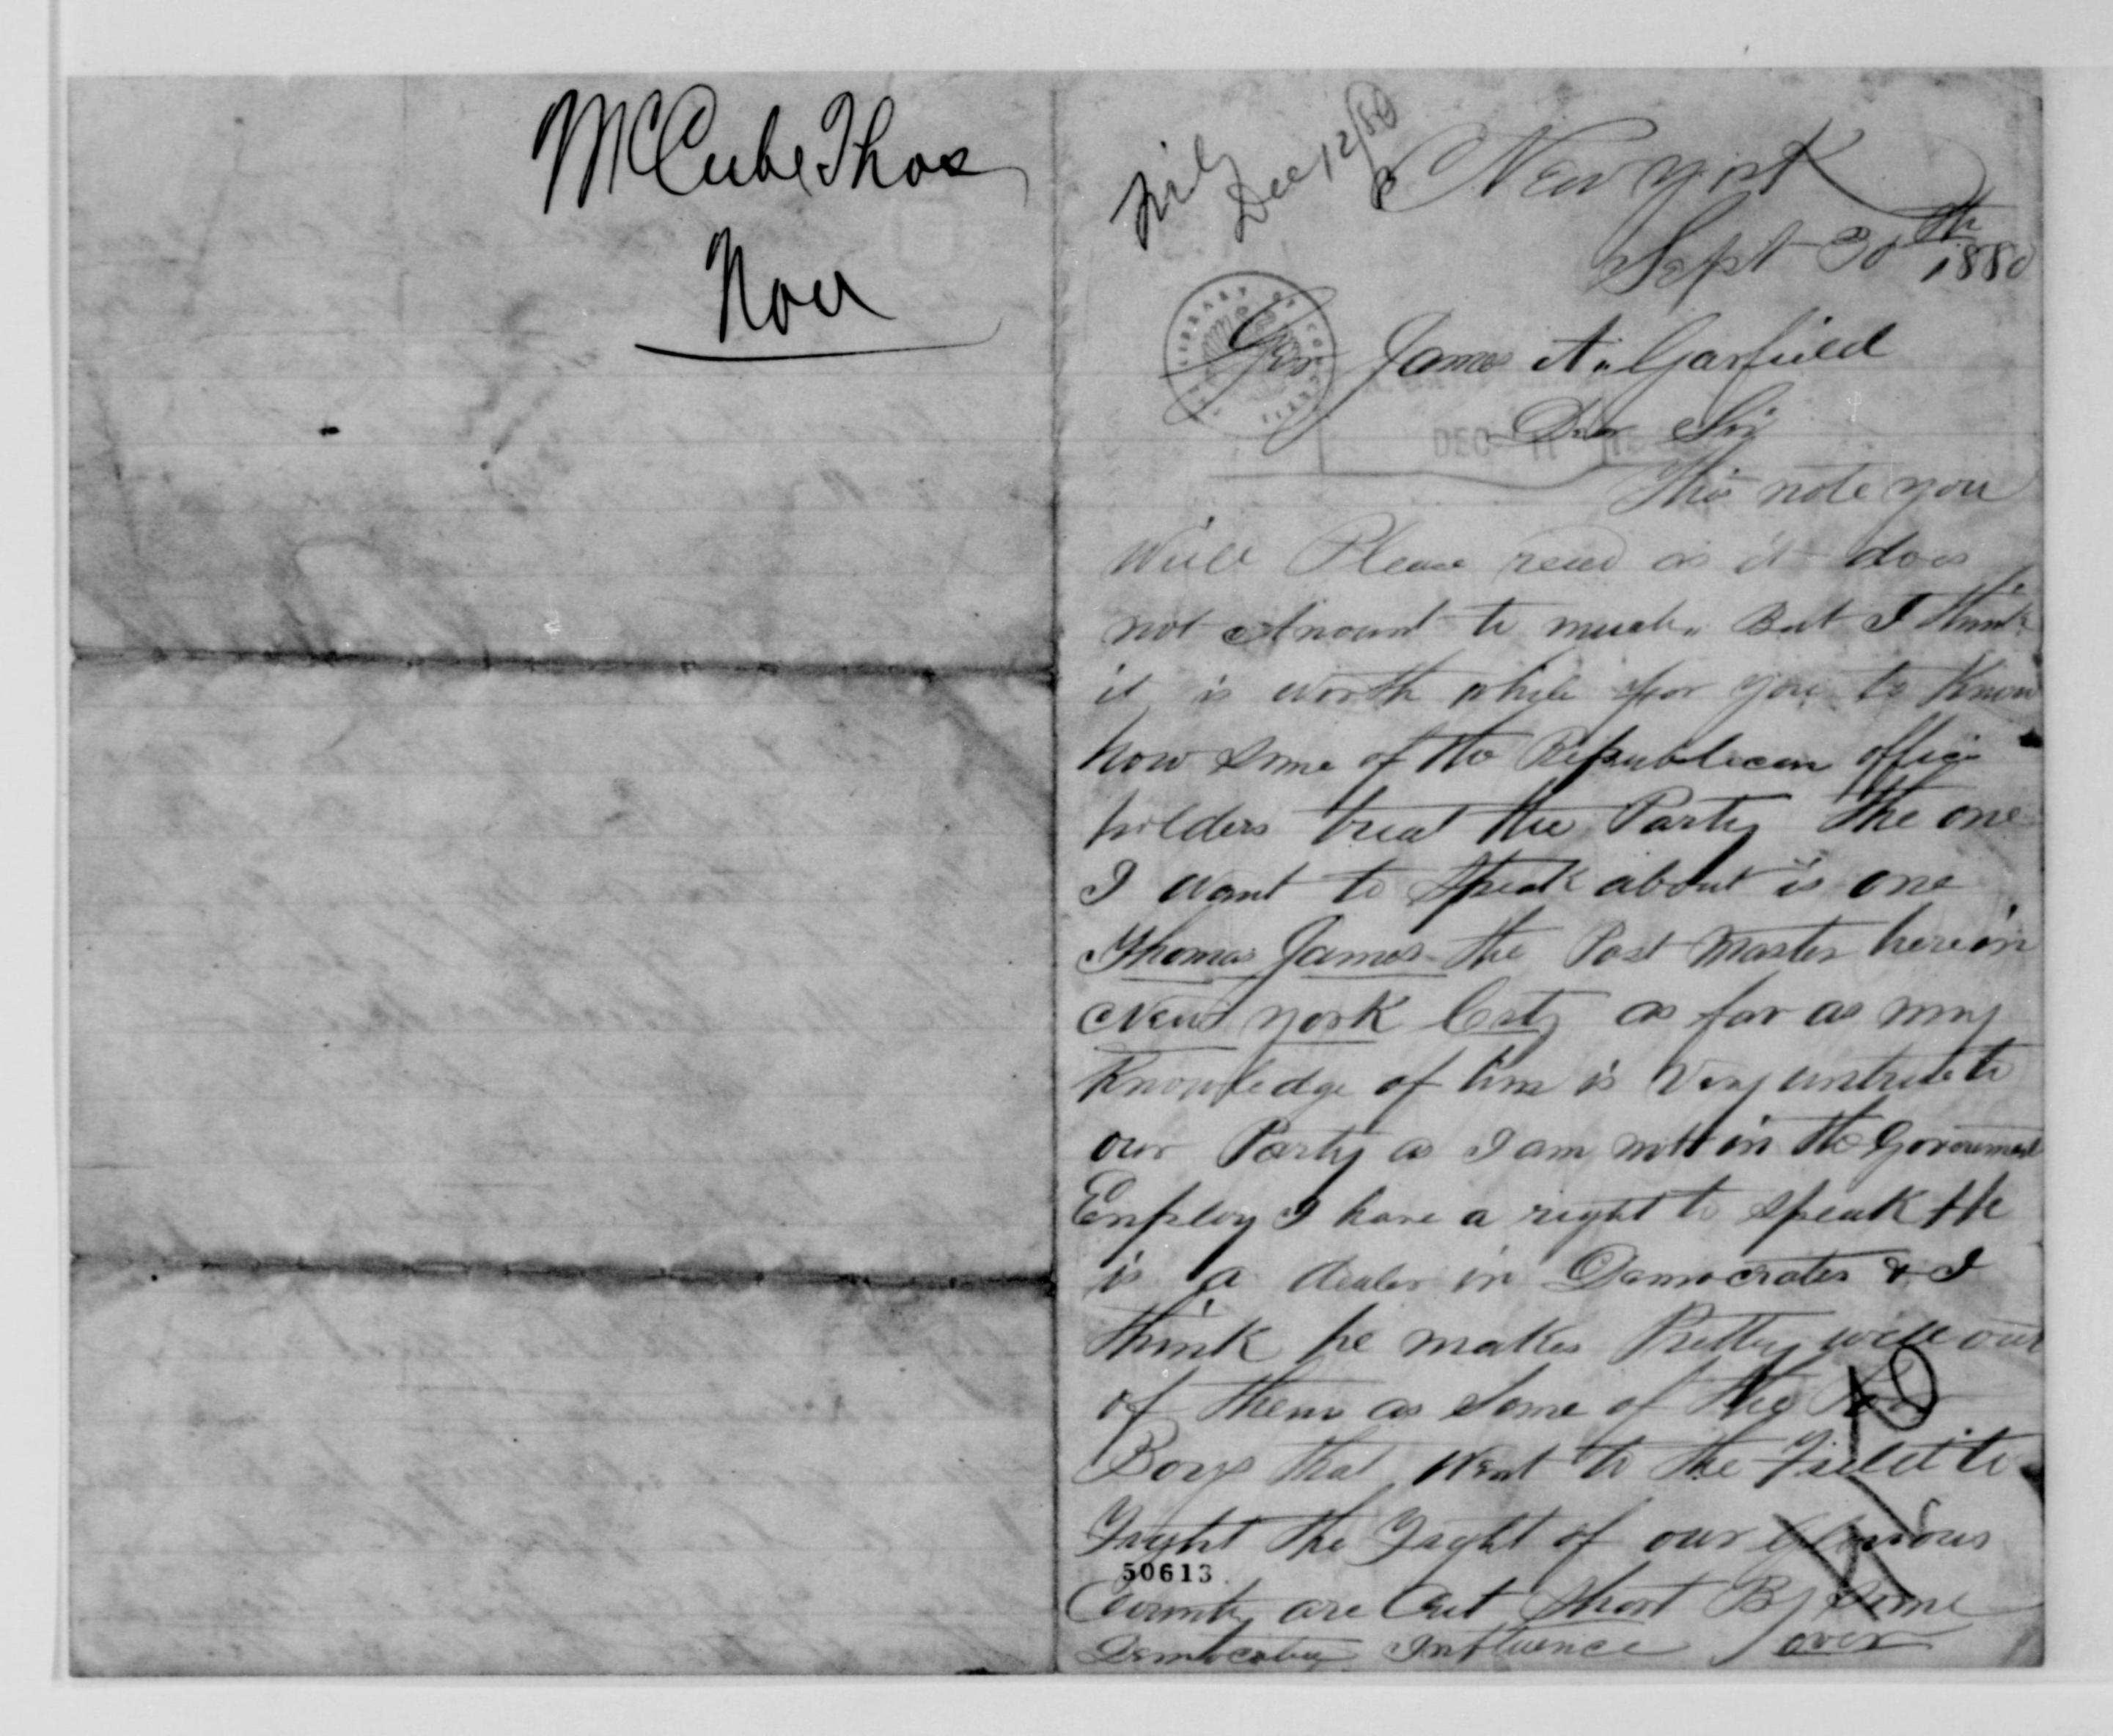 McCube Thos
Nov
Dec 12/80
New York
Sept 30th 1880
Gen James A. Garfield
Dear Sir
This note you
Will Please read as it does
not Amount to much. But I think
it is worth while for you to Know
how some of the Republican office
holders treat the Party The one
I want to speak about is one
Thomas James the Post Master here in
New York City as far as my
Knowledge of him is Very untrue to
our Party as I am nott in the Government
Employ I have a right to speak He
is a dealer in Democrates & I
think he makes Pretty well our
of them as some of the
Boys that Went to the Field to
Fight the Fight of our Glorious
50613
Country are Cut Short By Some
Influence over